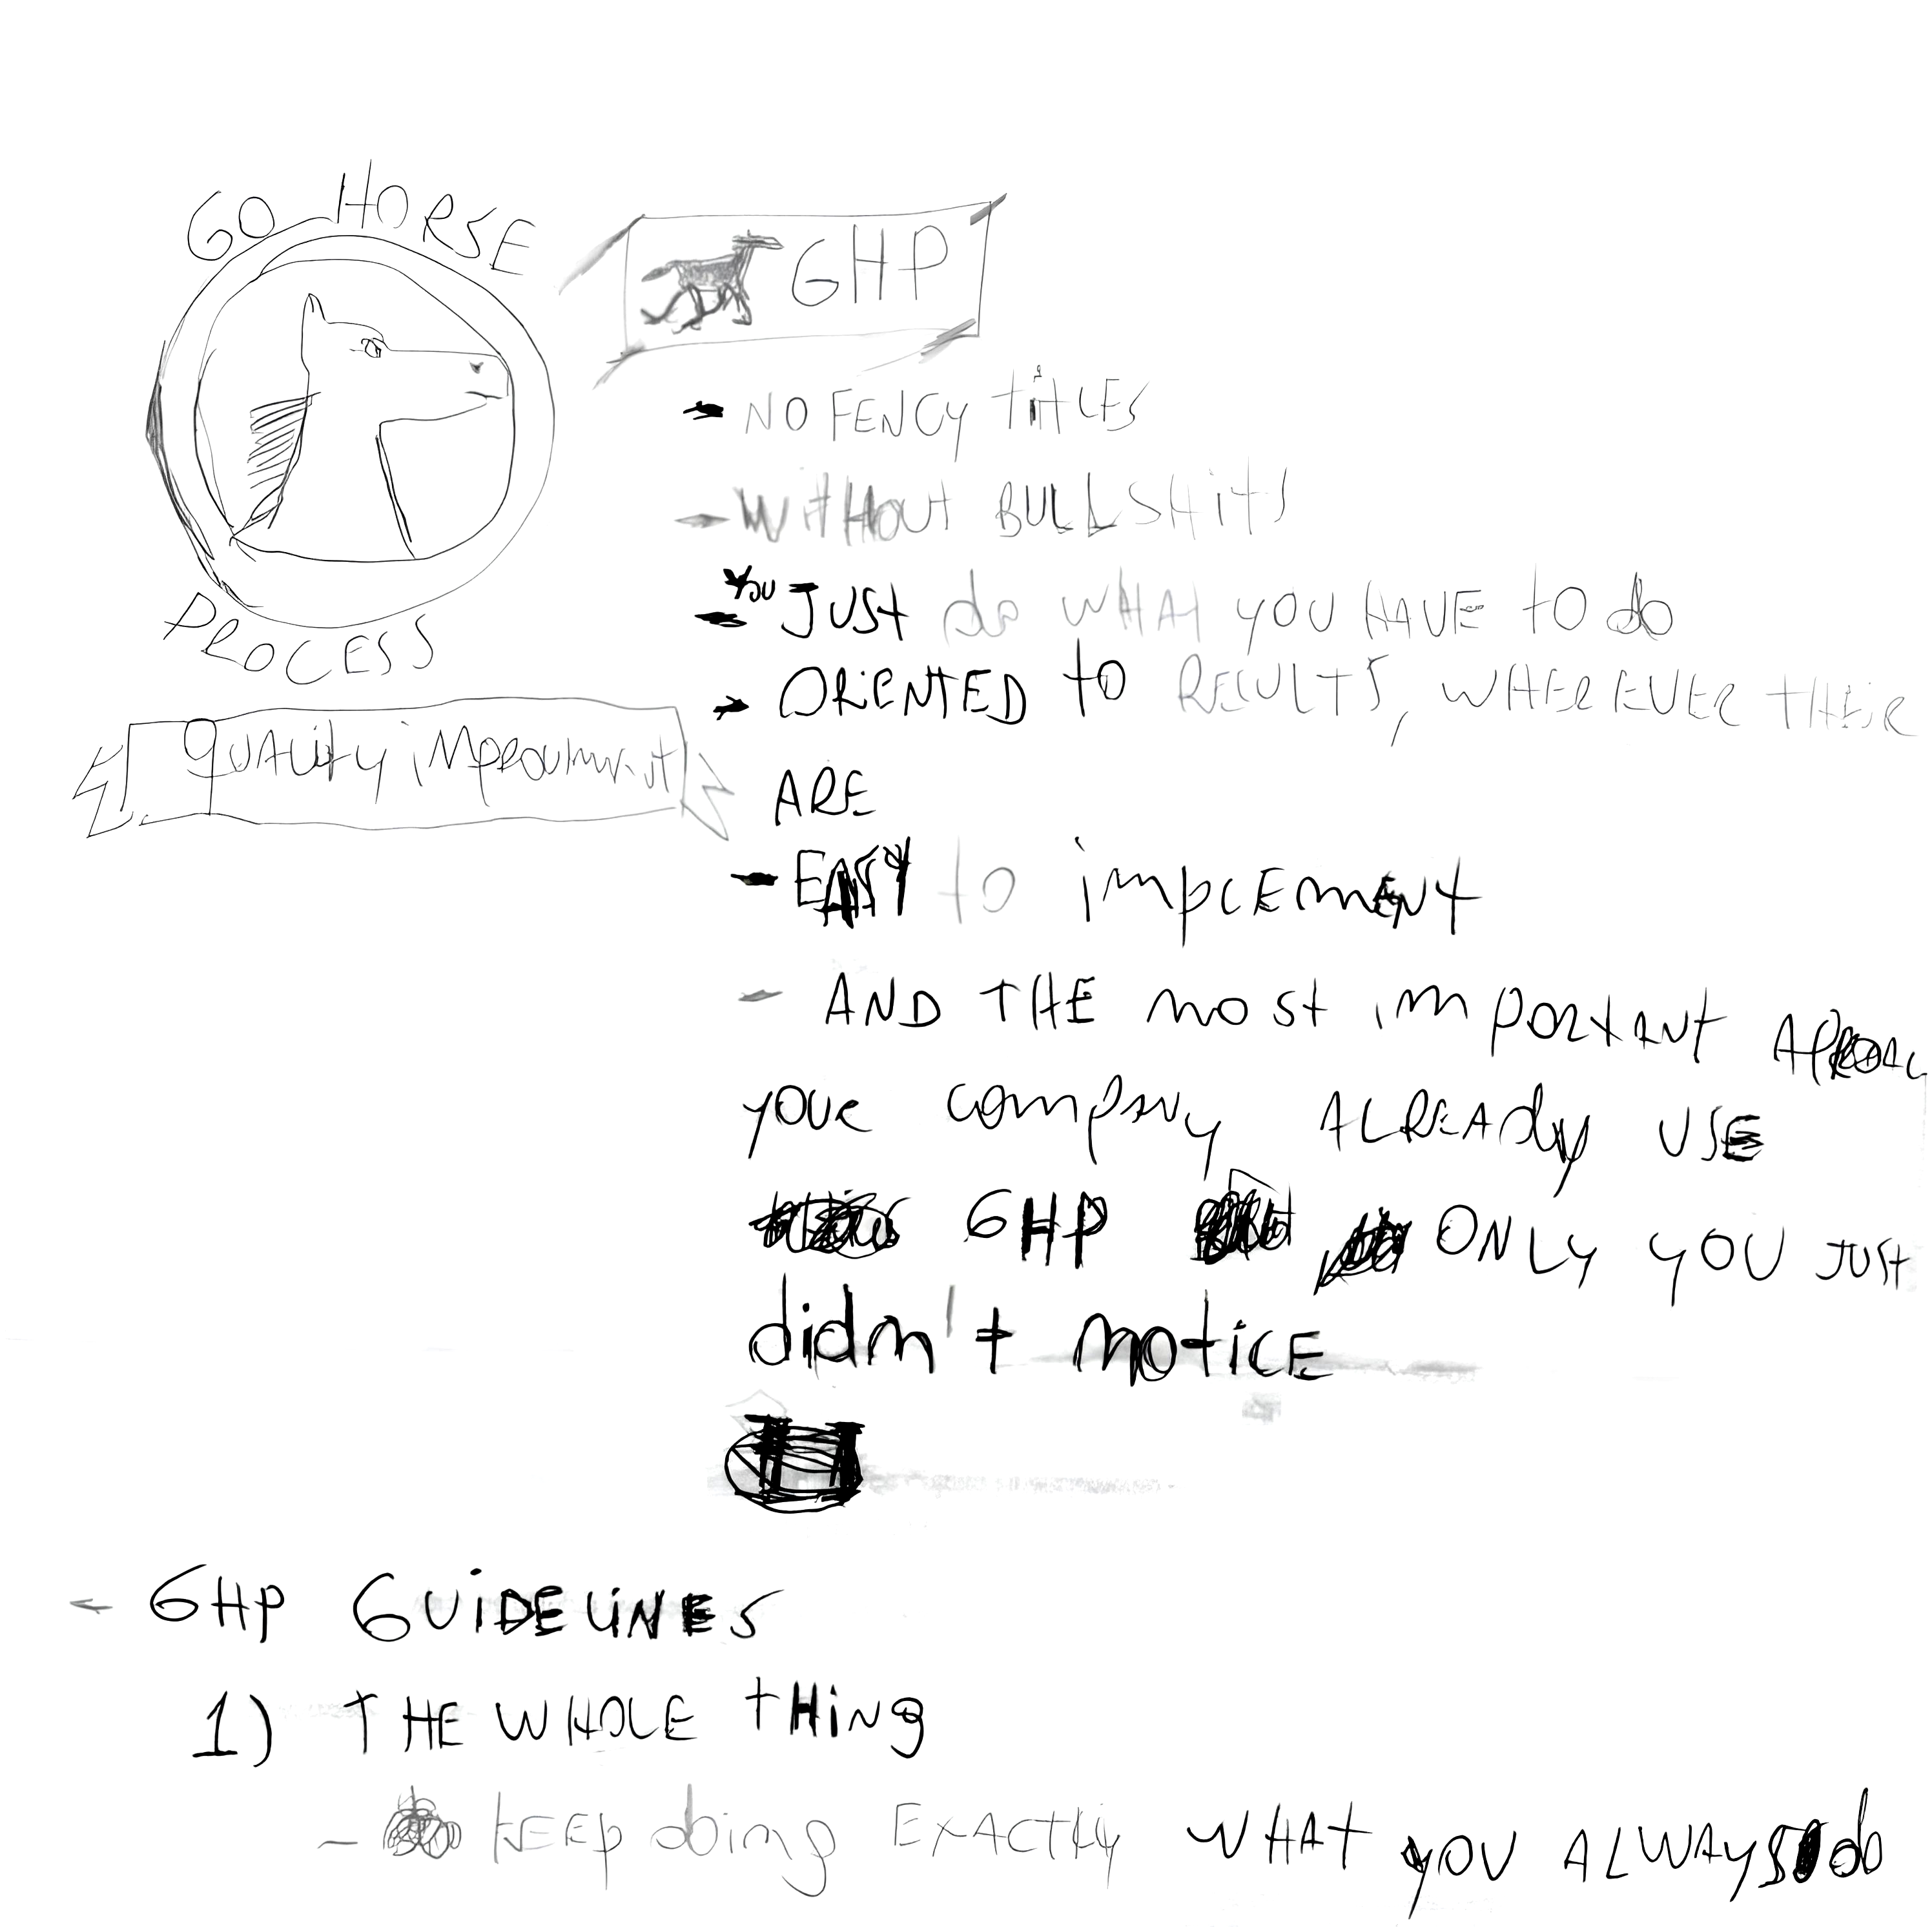 GO HORSE
PROCESS
GHP
quality improvement
- NO FENCY titLES
- WitHout BULLSHitS
- You JUSt do WHAt YOU HAVE to do
- ORiENTED to RESULTS, WHEREVER THEiR
ARE
- EASY to implEmENt
- AND THE most important
your company ALREAdy USE
GHP ONLy YOU JUSt
didn't noticE
- GHP GUiDELiNES
1) THE WHOLE tHing
- KEEp doing EXACtLy WHAt you ALWAYS do